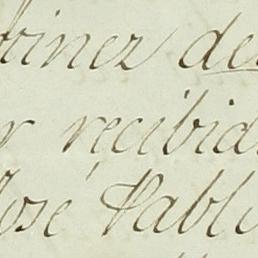 tinez de
r recibid
Jose Pabl